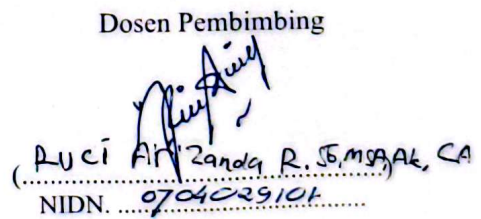 Dosen Pembimbing
(Ruci Arizanda R. SE, MSA, Ak, CA)
NIDN. 0704029101